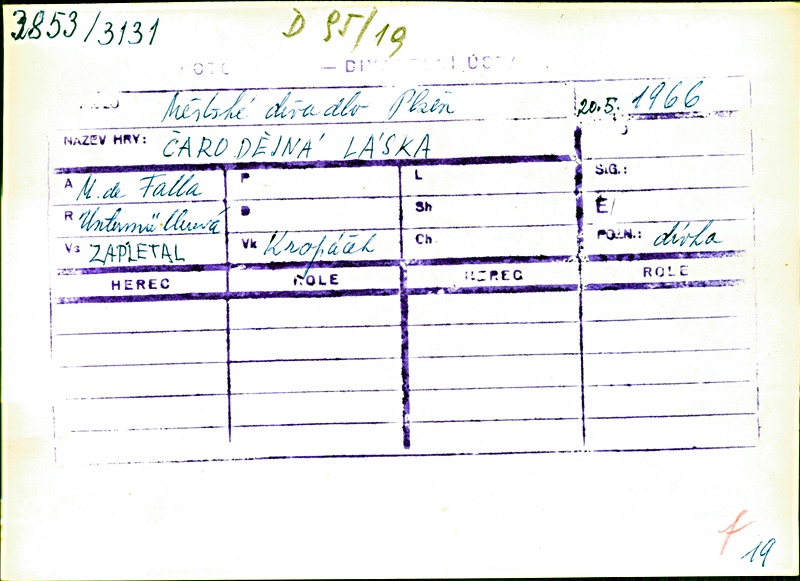 3853/3131 D 95/19
Městské divadlo Plzeň 20.5. 1966
NÁZEV HRY: ČARODĚJNÁ LÁSKA
SIG.:
A M. de Falla P L
R Untermüllerová D Sh É/
Vs ZAPLETAL Vk Kropáček Ch POZN.: dívka
HEREC ROLE HEREC ROLE
f
19